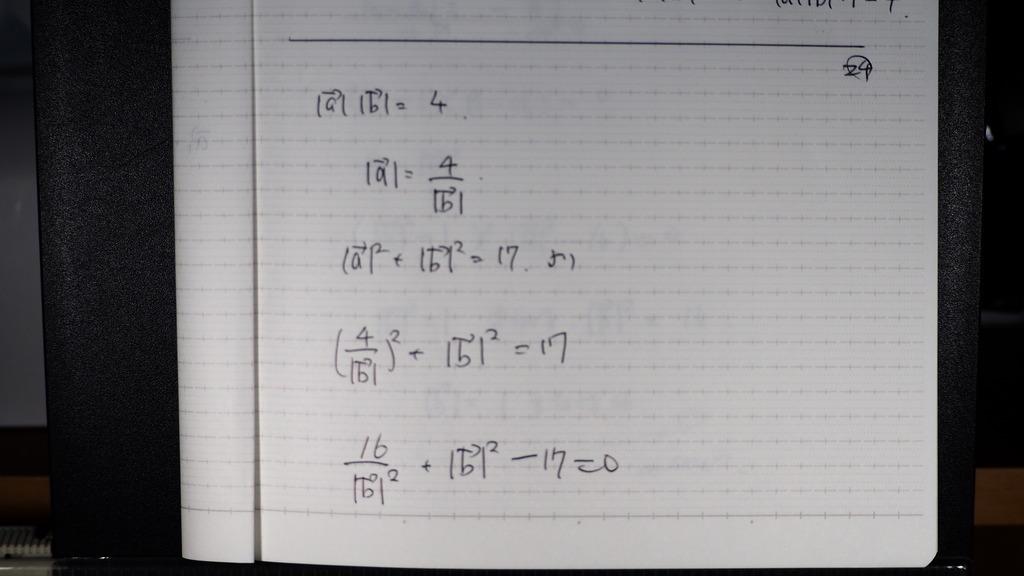 |a⃗| |b⃗| = 4.
|a⃗| = 4/|b⃗|
|a⃗|² + |b⃗|² = 17. より
(4/|b⃗|)² + |b⃗|² = 17
16/|b⃗|² + |b⃗|² - 17 = 0